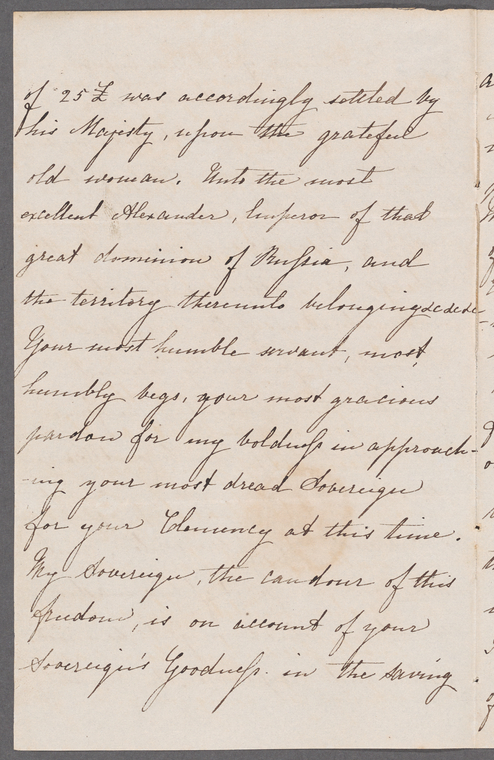 of 25£ was accordingly settled by
his Majesty, upon the grateful
old woman. Unto the most
excellent Alexander, Emperor of that
great dominion of Russia, and
the territory thereunto belonging &c &c &c
Your most humble servant, most,
humbly begs, your most gracious
pardon for my boldness in approach-
-ing your most dread Sovereign
for your Clemency at this time.
My Sovereign, the candour of this
freedom, is on account of your
Sovereign's Goodness. in the saving